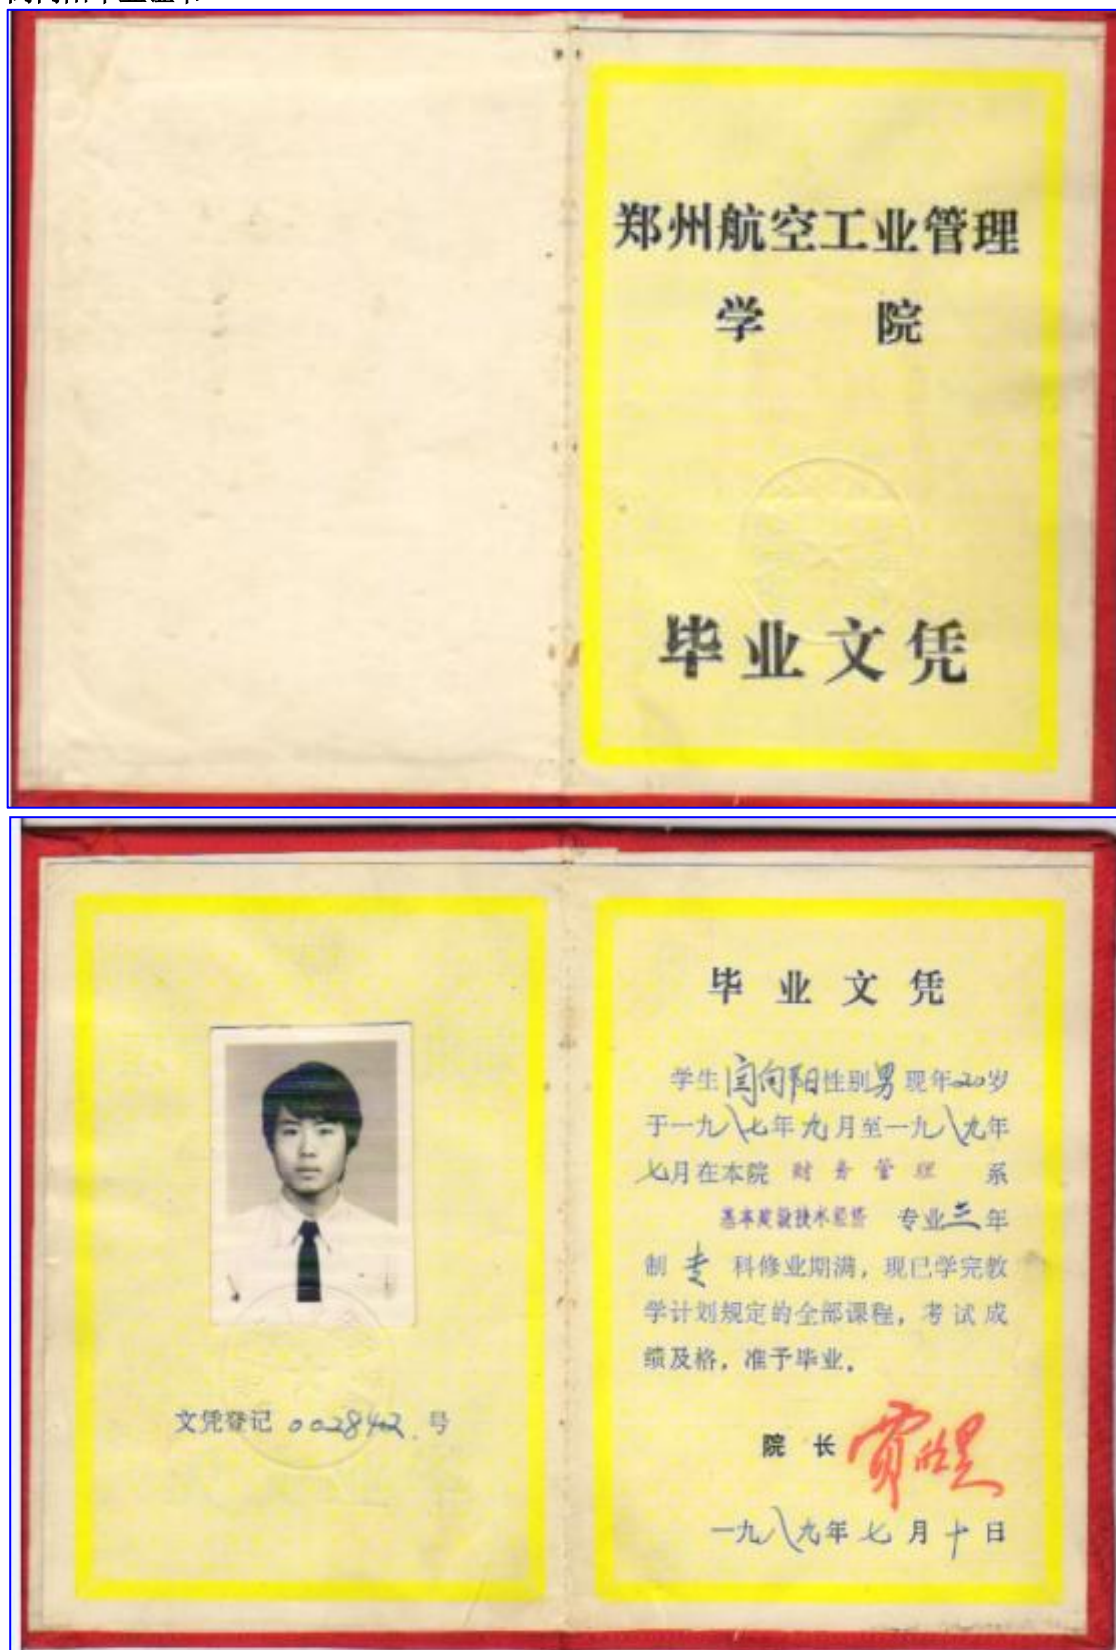 郑州航空工业管理
学院
毕业文凭
文凭登记 0028422 号
毕业文凭
学生闫向阳性别男现年20岁
于一九八七年九月至一九八九年
七月在本院 财务管理 系
基本建设技术经济 专业二年
制 专 科修业期满，现已学完教
学计划规定的全部课程，考试成
绩及格，准予毕业。
院长
一九八九年七月十日